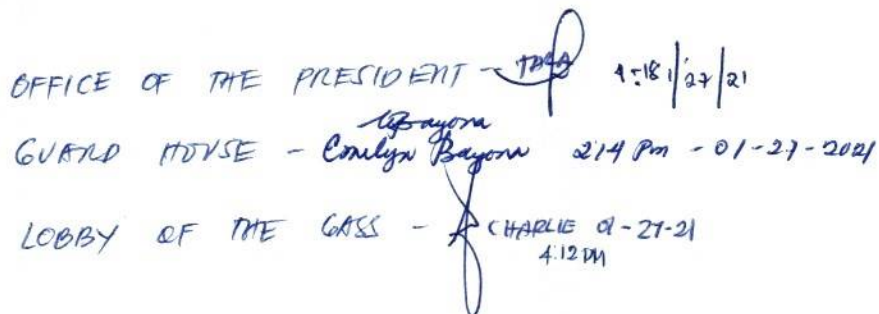 OFFICE OF THE PRESIDENT - 4:18 1/27/21
Bayona
GUARD HOUSE - Emelyn Bayona 214 Pm - 01-27-2021
LOBBY OF THE GASS - CHARLIE 01-27-21
4:12 PM